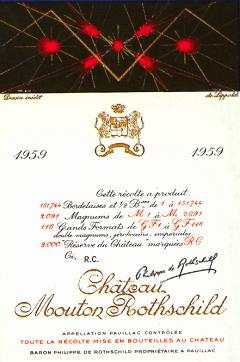 Dessin inédit de Lippold
1959 1959
Cette récolte a produit:
151.744 Bordelaises et ½ Bses de 1 à 151.744
2.091 Magnums de M 1 à M 2.091
116 Grands Formats de GF 1 à GF 116
double magnums, jéroboams, impériales
2.000 "Réserve du Château" marquées R.C.
Ci, R.C.
Philippe de Rothschild
Château
Mouton Rothschild
APPELLATION PAUILLAC CONTRÔLÉE
TOUTE LA RÉCOLTE MISE EN BOUTEILLES AU CHÂTEAU
BARON PHILIPPE DE ROTHSCHILD PROPRIÉTAIRE A PAUILLAC